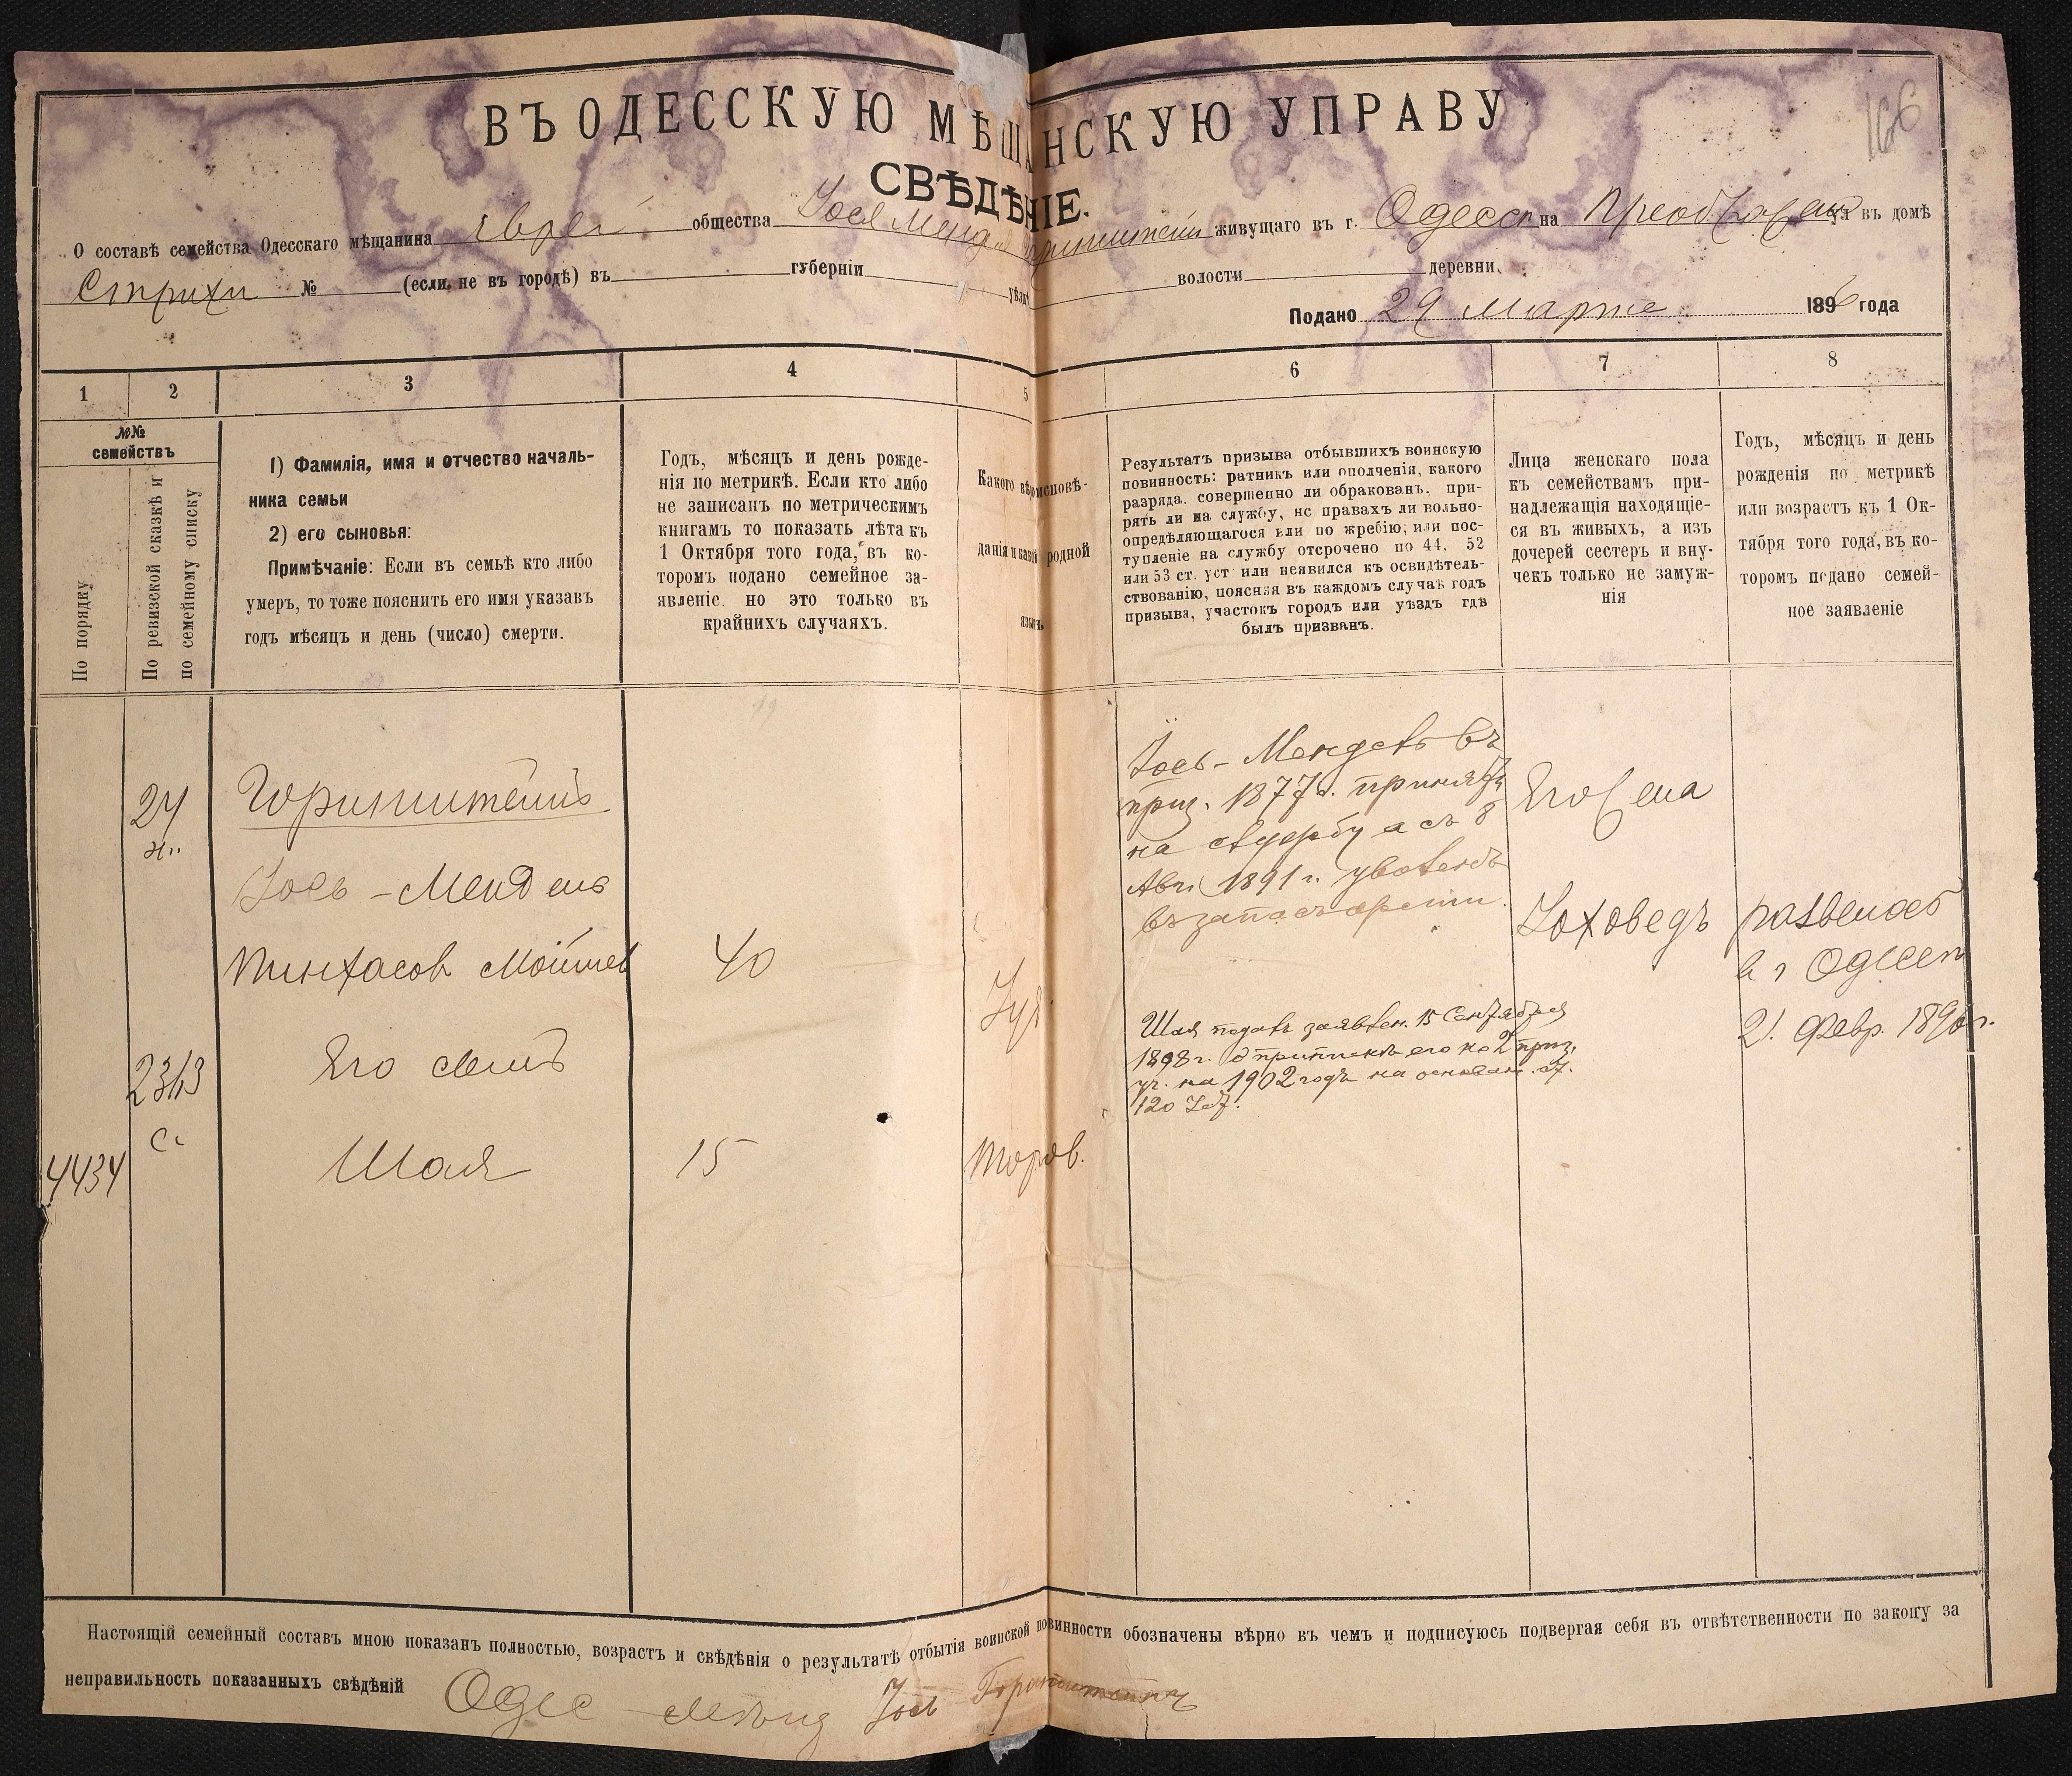 166
ВЪ ОДЕССКУЮ МѢЩАНСКУЮ УПРАВУ
СВѢДѢНІЕ.
О составѣ семейства Одесскаго мѣщанина еврей общества Іося Мендель живущаго въ г. Одессѣ на ул въ домѣ
Стрихи № (если не въ городѣ) въ губерніи уѣзд волости деревни
Подано 29 Марта 1896 года
1 2 3 4 5 6 7 8
№№
семействъ
По порядку
По ревизской сказкѣ и
по семейному списку
1) Фамилія, имя и отчество началь-
ника семьи
2) его сыновья:
Примѣчаніе: Если въ семьѣ кто либо
умеръ, то тоже пояснить его имя указавъ
годъ мѣсяцъ и день (число) смерти.
Годъ, мѣсяцъ и день рожде-
нія по метрикѣ. Если кто либо
не записанъ по метрическимъ
книгамъ то показать лѣта къ
1 Октября того года, въ ко-
торомъ подано семейное за-
явленіе. но это только въ
крайнихъ случаяхъ.
Какого вѣроисповѣ-
данія и какой родной
языкъ.
Результатъ призыва отбывшихъ воинскую
повинность: ратникъ или ополченія, какого
разряда. совершенно ли обракованъ, при-
рятъ ли на службу, нс правахъ ли вольно-
опредѣляющагося или по жребію; или пос-
тупленіе на службу отсрочено по 44, 52
или 53 ст. уст или неявился къ освидѣтель-
ствованію, поясняя въ каждомъ случаѣ годъ
призыва, участокъ городъ или уѣздъ гдѣ
былъ призванъ.
Лица женскаго пола
къ семействамъ при-
надлежащія находящіе-
ся въ живыхъ, а изъ
дочерей сестеръ и вну-
чекъ только не замуж-
нія
Годъ, мѣсяцъ и день
рожденія по метрикѣ
или возрастъ къ 1 Ок-
тября того года, въ ко-
торомъ подано семей-
ное заявленіе
24
н.
Іось - Мендель
Пинхасов Мойшев 40
Іуд
2313
с.
Его сынъ
4434 Шая 15
Іось - Мендель въ
приз. 1877 г. принятъ
на службу а съ 8
Авг. 1891 г. уволенъ
въ запасъ арміи.
Шая подалъ заявлен. 15 Сентября
1898 г. о припискѣ его ко 2 приз.
уч. на 1902 годъ на основан. ст.
120 Уст.
Его жена
Іоховедъ
в г Одессѣ
21. Февр. 1890 г.
Настоящій семейный составъ мною показанъ полностью, возрастъ и свѣдѣнія о результатѣ отбытія воинской повинности обозначены вѣрно въ чемъ и подписуюсь подвергая себя въ отвѣтственности по закону за
неправильность показанныхъ свѣдѣній Одес Іось